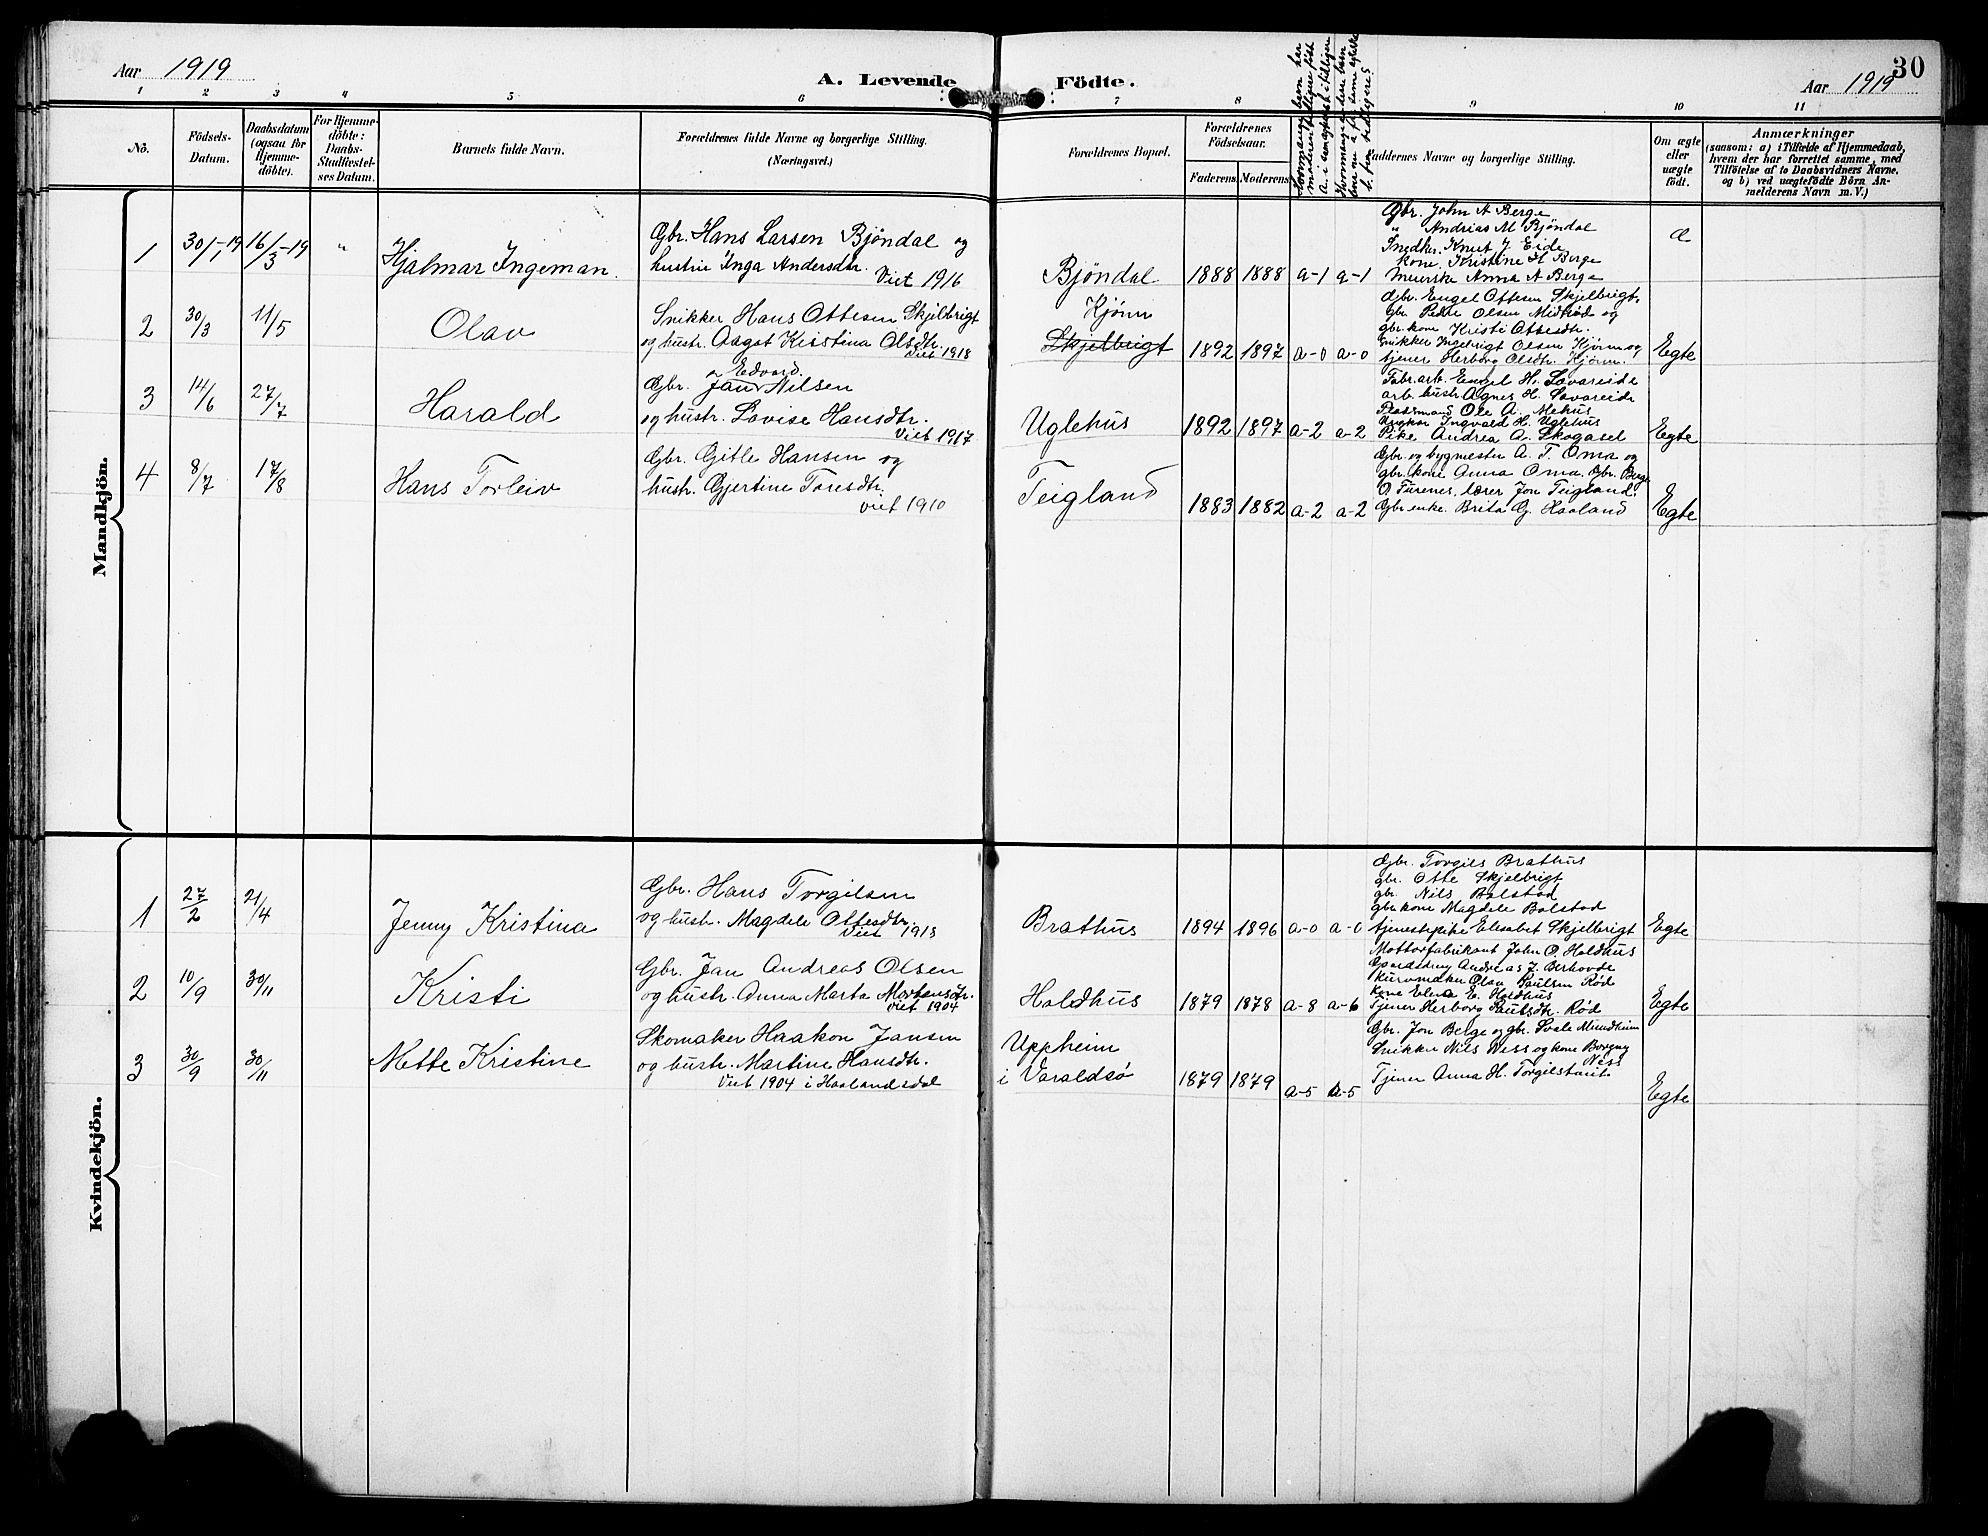 Aar 1919
A. Levende Födte.
Aar 1919
30
1 2 3 4 5 6 7 8 9 10 11
No.
Födsels-Datum.
Daabsdatum (ogsaa for Hjemme-döbte).
For Hjemme-döbte: Daabs-Stadfæstel-ses Datum.
Barnets fulde Navn.
Forældrenes fulde Navne og borgerlige Stilling.
(Næringsvei.)
Forældrenes Bopæl.
Forældrenes Födselsaar.
Faderens. Moderens.
Faddernes Navne og borgerlige Stilling.
Om ægte eller uægte födt.
Anmærkninger
(saasom: a) i Tilfælde af Hjemmedaab,
hvem der har forrettet samme, med
Tilföielse af to Daabsvidners Navne,
og b) ved uægtefödte Börn An-
melderens Navn m. V.)
Mandkjön.
1 30/1-19 16/3-19 " Hjalmar Ingeman.
Gbr. Hans Larsen Bjöndal og
hustru Inga Andersdtr.
Viet 1916
Bjöndal 1888 1888 a-1 a-1
Gbr. John A Berge
" Andrias M Bjöndal
Snedker. Knut J. Eide
kone. Kristine H Berge
Anna A Berge
Æ
2 30/3 11/5 Olav
Snikker Hans Ottesen Skjelbrigt
og hustr. Aagot Kristina Olsdtr.
Viet 1918
Kjönn
Skjelbrigt 1892 1897 a-0 a-0
Gbr. Engel Ottesen Skjelbrigt,
gbr. Peder Olsen Midthöd og
gbr. kone Kristi Ottesdtr.
Snikker Ingebrigt Olsen Hjönn og
tjener Herborg Olsdtr. Hjönn.
Egte
3 14/6 27/7 Harald
Edvard.
Gbr. Jan Nilsen
og hustr. Lovise Hansdtr.
Viet 1917
Uglehus 1892 1897 a-2 a-2
Fabr. arb. Engel H. Lovareide
arb. hustr. Agnes H. Lovareide
Ole A. Mehus
Ungkar Ingvald H. Uglehus
Pike Andrea A. Skogasel
Egte
4 8/7 17/8 Hans Torleiv
Gbr. Gitle Hansen og
hustr. Gjertine Toresdtr.
viet 1910
Teigland 1883 1882 a-2 a-2
Gbr. og bygmester A. T. Oma og
gbr. kone Anna Oma, Gbr. Berge
O. Turenes, lærer Jon Teigland.
Gbr. enke. Brita G. Haaland
Egte
Kvindekjön.
1 27/2 21/4 Jenny Kristina
Gbr. Hans Torgilsen
og hustr. Magdele Ottesdtr.
Viet 1918
Brathus 1894 1896 a-0 a-0
Gbr. Torgils Brathus
gbr. Otte Skjelbrigt
gbr. Nils Bolstad
gbr kone Magdele Bolstad
tjenestepike Elisabet Skjelbrigt
Egte
2 10/9 30/11 Kristi
Gbr. Jan Andreas Olsen
og hustr. Anna Marta Mortensdtr.
viet 1904
Holdhus 1879 1878 a-8 a-6
Mottorfabrikant John O. Holdhus
Gaardsdrng Andreas J. Berhovde
Kurvmaker Olav Paulsen Röd
Kone Elena E. Holdhus
Tjener Herborg Paulsdtr. Röd
Egte
3 30/9 30/11 Mette Kristine
Skomaker Haakon Jansen
og hustr. Martine Hansdtr.
Viet 1904 i Haalandsdal
Uppheim
i Varaldsö 1879 1879 a-5 a-5
Gbr. Jon Berge og gbr. Svale Mundheim
Snikker Nils Ness og kone Borgny
Ness
Tjener Anna H. Torgilstveit
Egte